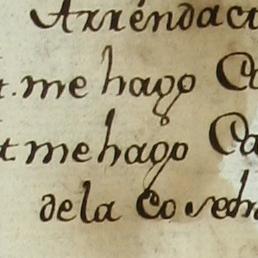 Arréndac
t. me hago C
t me hago Ca
de la Cosech